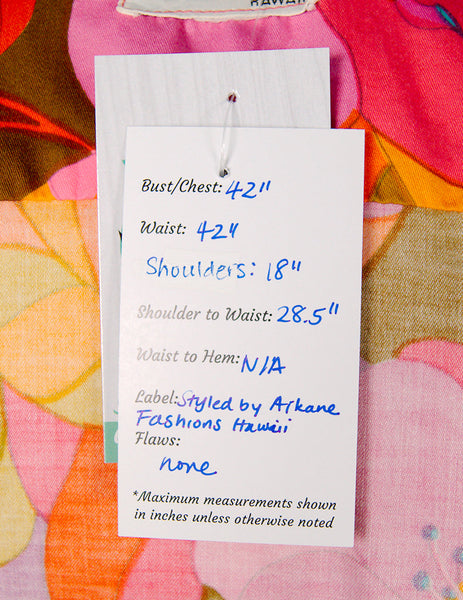 HAWAII
Bust/Chest: 42"
Waist: 42"
Shoulders: 18"
Shoulder to Waist: 28.5"
Waist to Hem: N/A
Label: Styled by Arkane
Fashions Hawaii
Flaws:
none
*Maximum measurements shown
in inches unless otherwise noted